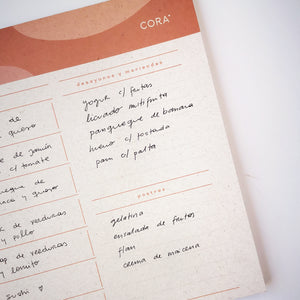 CORA
desayunos y meriendas
yogur c/ frutas
licuado multifruta
panqueque de banana
huevo c/ tostada
pan c/ palta
postres
gelatina
ensalada de frutas
flan
crema de maicena
de
queso
de jamón
c/ tomate
de
y queso
de verduras
y pollo
de verduras
y lomito
sushi